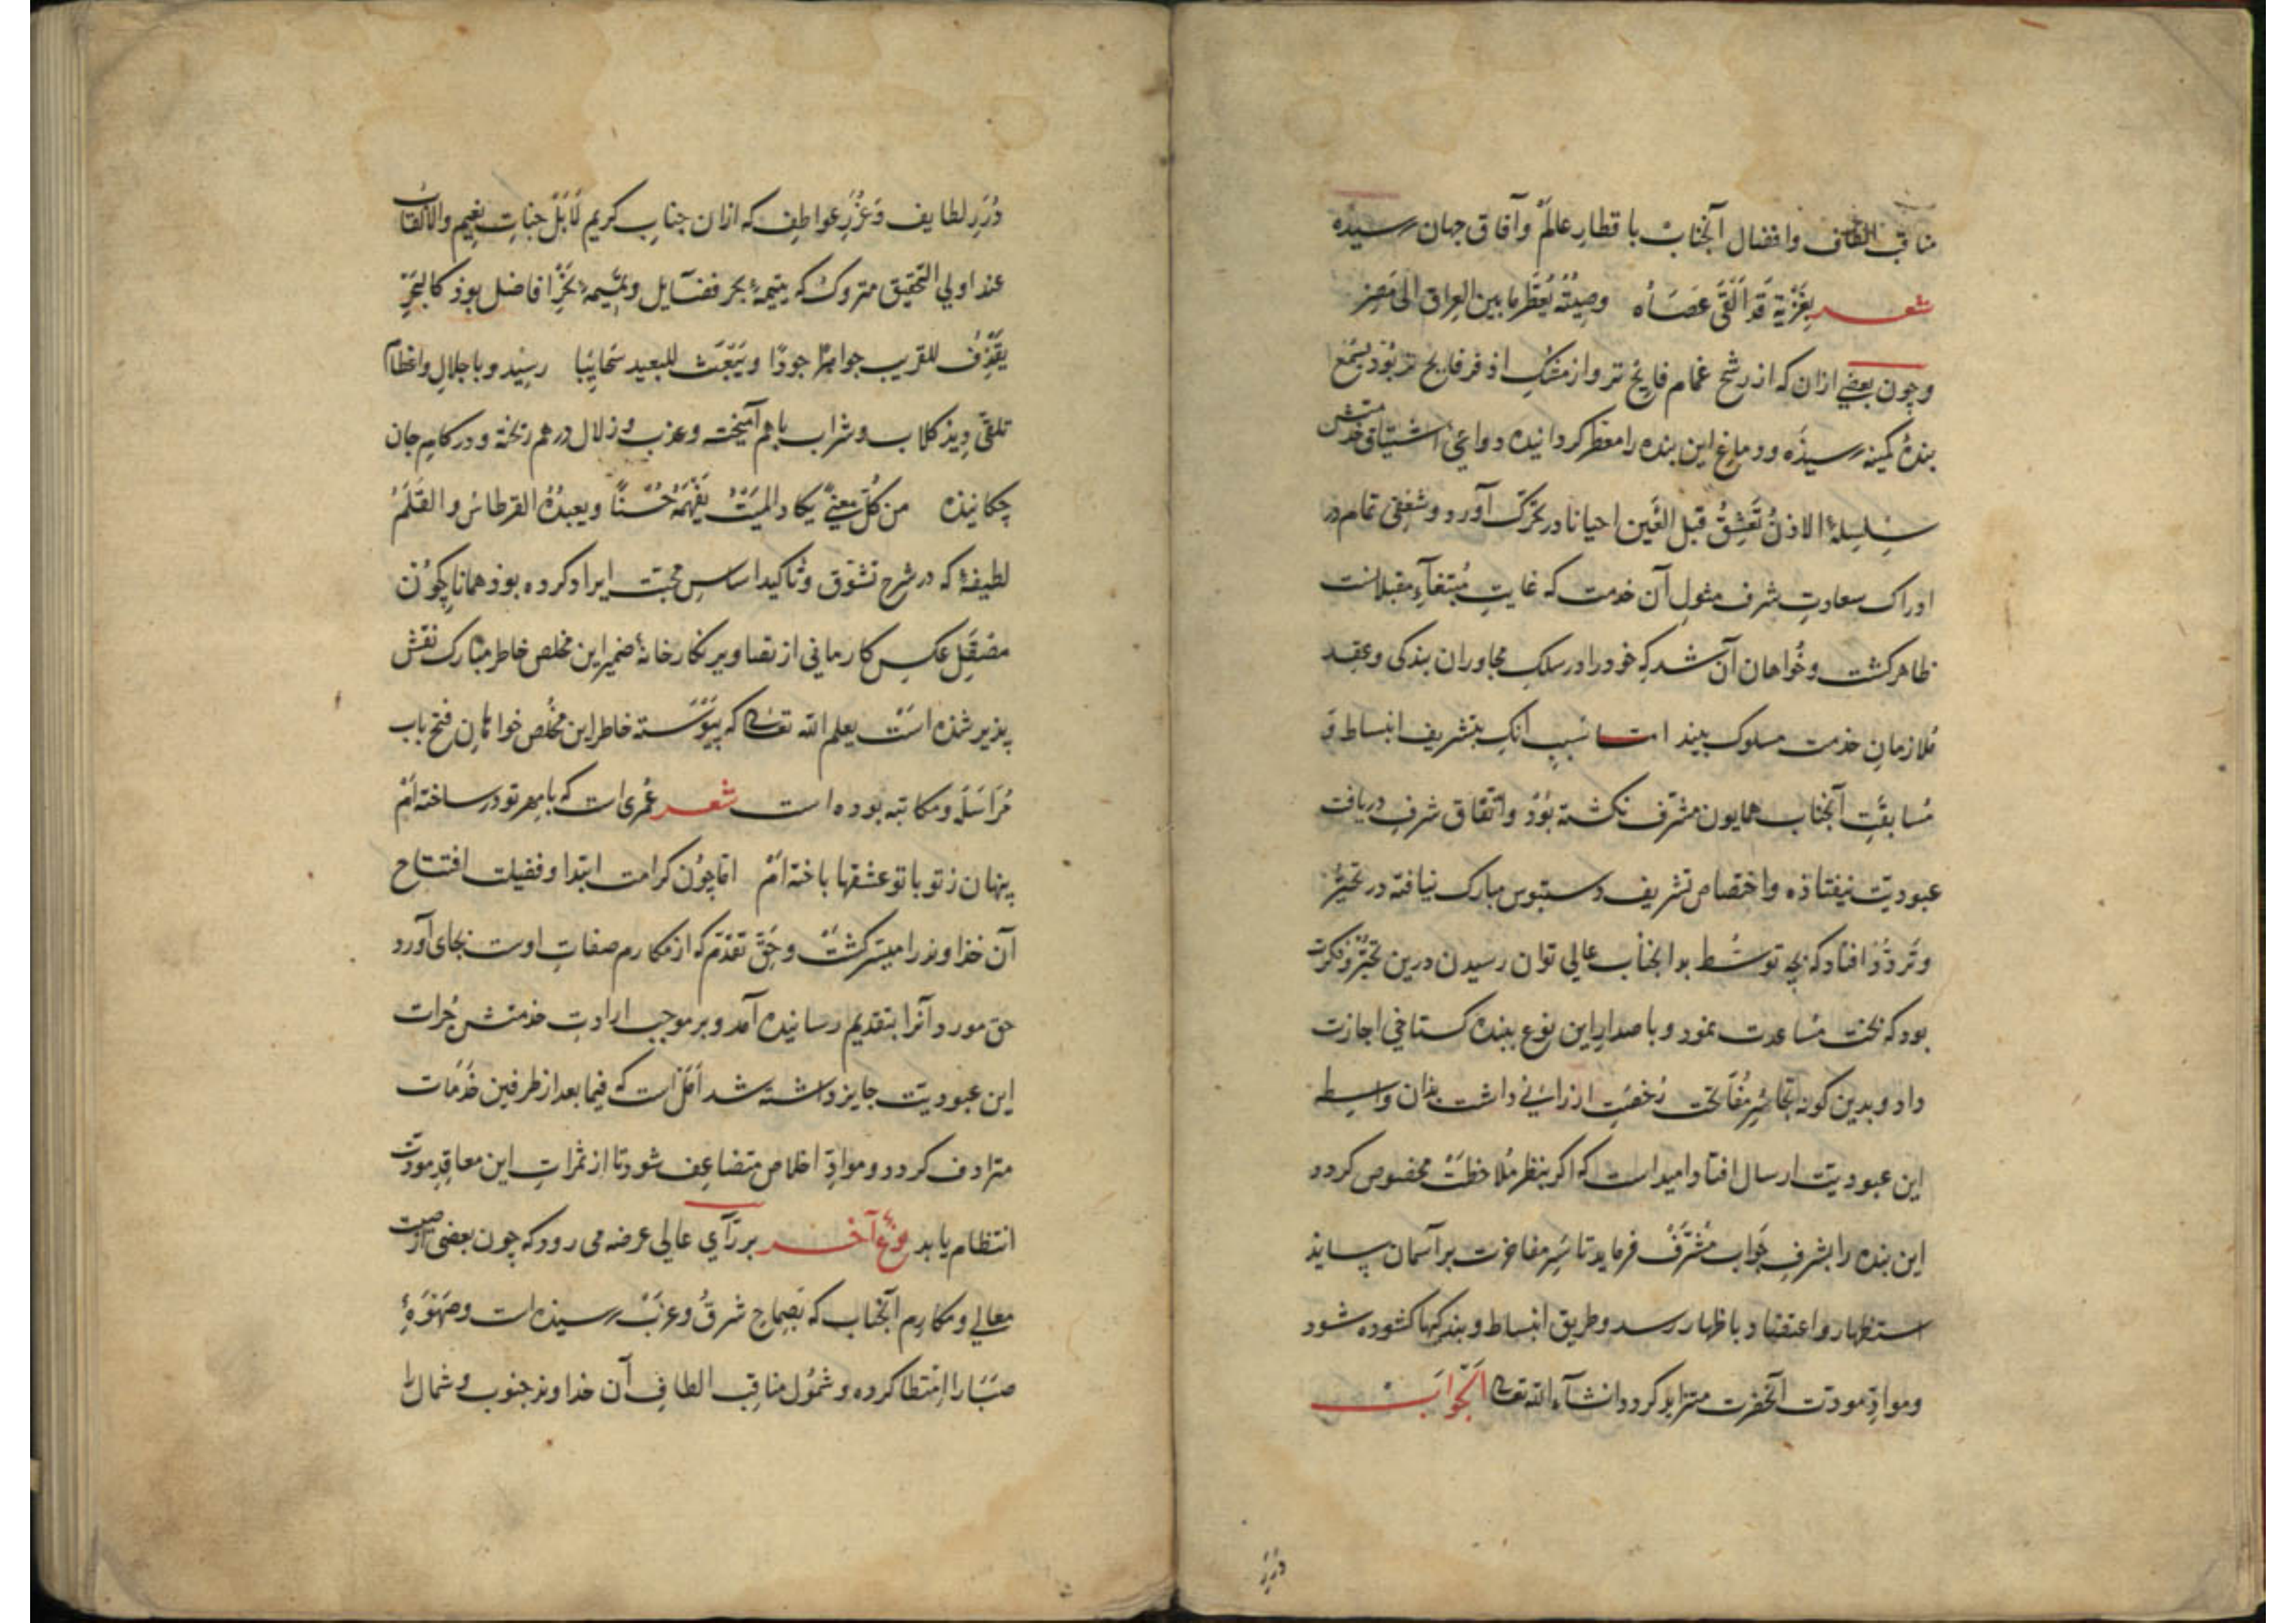 مناقب الطاف وافضال آنجناب باقطارِ عالم وآفاق جهان رسیده
شعر بِغَزْنِةَ قَد اَلْقَی عَصَاهُ وصِیتُهُ یُعَطِّرُ مابین العِراق الی مصرِ
وچون بعضی ازان که از رشح غمام فایح تر واز مشک اذفر فایح تر بود بسَمع
بندهٔ کمینه رسیذه ودماغ این بنده را معطر کردانیده دواعی اشتیاق خدمتش
سِلسِلهٔ الاذنُ تَعشِقُ قبل العَین احیانا در تحرّک آورد وشعفی تمام در
ادراک سعادتِ شرف مثولِ آن خدمت که غایتِ مُبتغآءِ مقبلانست
ظاهر کشت وخُواهان آن شد که خود را در سلکِ مجاوران بندکی وعِقدِ
مُلازمان خدمت مسلوک بیند اما بسببِ انکِ بتشریف انبساط وَ
مُسابقتِ آنجناب همایون مشرّف نکشته بُوَد واتفاق شرفِ دریافت
عبودیّت نیفتاذه واختصاص تشریف دستبوس مبارک نیافته در تحیّر
وتَردُّد افتاد که بچه توسُّط بدانجناب عالی توان رسیدن درین تحیّر وفکرت
بود که بخت مُساعدت نمود وباصدارِ این نوع ببنده کستاخی اجازت
داد وبدین کونه تجاسُرِ مُفاتحت رُخصَت ارزانی داشت بذان واسطه
این عبودیّت ارسال افتاد امید است که اکر بنظر مُلاحظت مخصوص کردد
این بنده را بشرفِ جَواب مُشرَّف فرماید تا سَرِ مفاخرت بر آسمان ساید
استظهار واعتضاد باظهار رسد وطریق انبساط وبندکیها کشوده شود
وموادِّ مودت آنحضرت متزاید کردد انشآء الله تعالی الجواب
دُرَرِ
دُرَرِ لطایف وَغُرَرِ عواطِف که ازان جنابِ کریم لَا بَل جناتِ نعیم والالقاب
عند اولی التحقیق متروک که یتیمهٔ بحر فضایل وتمیمهٔ نحرِ افاضل بوذ کالبَحرِ
یَقذِفُ للقریب جواهرًا جودًا ویَبعَث للبعید سَحایِبًا رسید وباجلالِ واعظام
تلقی دید کلاب وشراب باهم آمیخته وعذب وزلال درهم ریخته ودر کامِ جان
چکانیذه من کُلِّ معنیً یکاد المیّتُ یَفهَمُهُ حُسنًا ویعبدُهُ القرطاسُ والقَلَمُ
لطیفهٔ که در شرح تشوّق وتاکید اساسِ محبّت ایراد کرده بوذ همانا چُون
مصقَلِ عکس کار مانی از تصاویر نکارخانهٔ ضمیر این مخلص خاطر مبارک نقش
پذیر شذه است یعلم الله تعالی که پیوسته خاطر این مخلص خواهان فتح باب
مُراسَلَه ومکاتبه بوده است شعر عُمری است که بامهر تو در ساخته‌ام
پنهان ز تو باتو عشقها باخته‌ام اما چُون کرامت ابتدا وفضیلت افتتاح
آن خذاوند را میسّر کشت وحَقِّ تقدّم که از مکارم صفاتِ اوست بجای آورد
حق مورد آنرا بتقدیم رسانیده آمد وبر موجب ارادتِ خدمتش جُرات
این عبودیّت جایز داشته شد اَمَل است که فیما بعد از طرفین خدَمات
مترادف کردد وموادِّ اخلاص متضاعِف شود تا از ثمراتِ این معاقدِ مودّت
انتظام یابد نوع آخر بر رآی عالی عرضه می رود که چون بعضی از صیت
معالی ومکارِم آنجناب که بصِماخِ شرق وغرب رسیذه است وصَهوَهٔ
صبَا را امتطا کرده وشمُول مناقِب الطافِ آن خداوند جنوب وشمال را